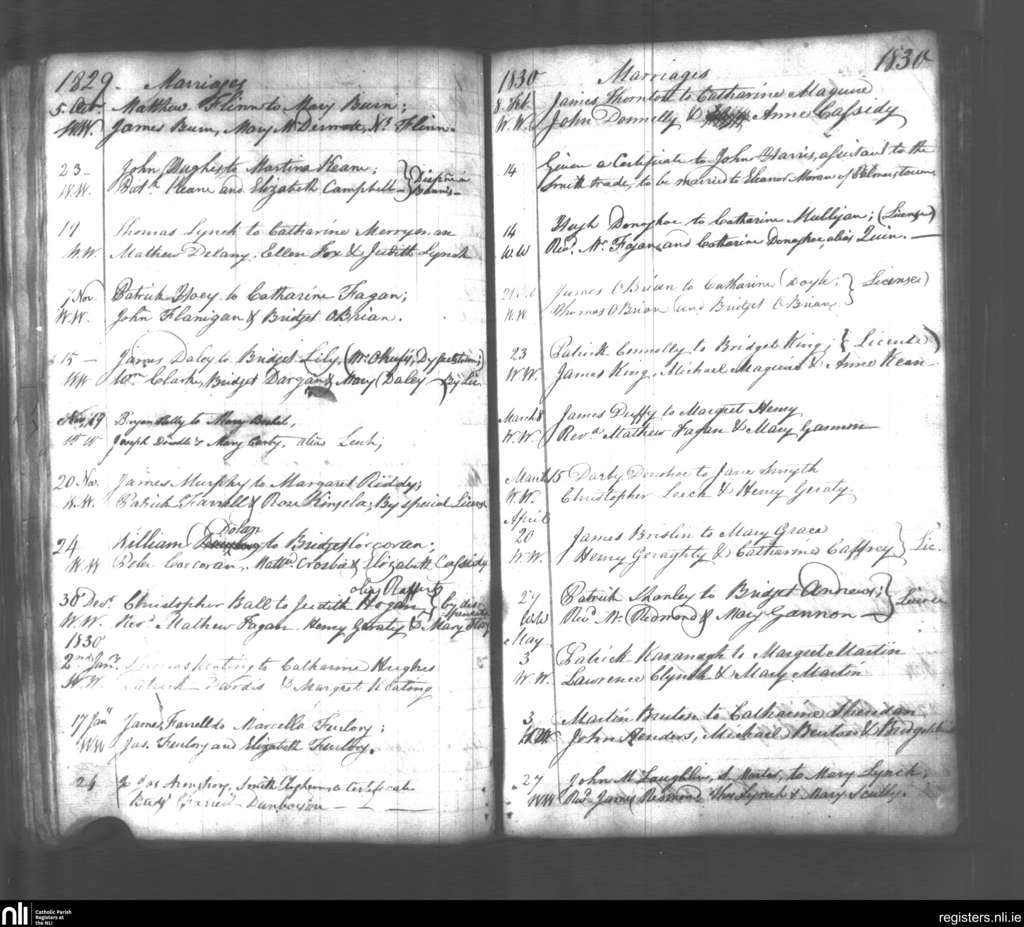 1829. Marriages
5. Matthew Flinn to Mary Burn;
W.W. James Burn, Mary McDermote, Flinn.
23 - John Hughes to Martina Keane;
W.W. Patk. Keane and Elizabeth Campbell -
19 Thomas Lynch to Catharine
W.W. Mathew Delany. Ellen Fox & Judith Lynch
7 Nov. Patrick Hoey to Catharine Fagan;
W.W. John Flanigan & Bridget OBrian.
15 - James Daley to Bridget Lily,
WW Wm. Clark, Bridget Dargan & Mary Daley By Lic
Nov. 19 Bryan Kelly to Mary
W Joseph & Mary, alias Leech;
20 Nov. James Murphy to Margaret Riddy;
W.W. Patrick Farrell & Rose Kinsela; By special License
Dolan
24 William to Bridget Corcoran:
W.W Peter Corcoran, Mattw. Crosbie & Elizabeth Cassidy
alias Rafferty
30 Decr. Christopher Ball to Judith Hogan by dis
W.W. Revd. Mathew Fagan. Henry Geraty & Mary
1830
2nd Jany. Keating to Catharine Hughes
W.W. Patrick & Margret Keating
17 Jany James Farrell to Marcella Furlory;
WW Jas. Furlory and Elizabeth Furlory.
24 Smith Certificate
Dunboyne
1830 Marriages 1830
8. Feb James Thornton to Catharine Maguire
W.W. John Donnelly & Anne Cassidy
14 Given a Certificate to John Harris, assistant to the
Smith trade, to be married to Eleanor Moran of Palmerstown
14 Hugh Donoghoe to Catharine Mulligan; (License)
W.W Revd. Mr. Fagan, and Catharine Donoghoe alias Quin.
James OBrian to Catharine Doyle; License)
W.W Thomas OBrian and Bridget OBrian
23 Patrick Connolly to Bridget King; (License)
W.W. James King, Michael Maguire & Anne Kean -
March 8 James Duffy to Margret Henry
W.W. Revd. Mathew Fagan & Mary Gannon
March 15 Darby Donohoe to Jane Smyth
W.W. Christopher Leech & Henry Geraty
April
20 James Breslin to Mary Grace
W.W. Henry Geraghty & Catharine Caffrey Lic.
27 Patrick Shanley to Bridget Andrews;
W.W Revd. Mr. Redmond & Mary Gannon - License
May
3 Patrick Kavanagh to Margret Martin
W.W. Lawrence Clynch & Mary Martin
3 Martin Bruton to Catharine Sheridan
W.W John, Michael Bruton & Bridget
27 John McLaughlin, to Mary Lynch;
WW Revd. James Redmond Lynch & Mary Scully.
nli Catholic Parish
Registers at
the NLI
registers.nli.ie